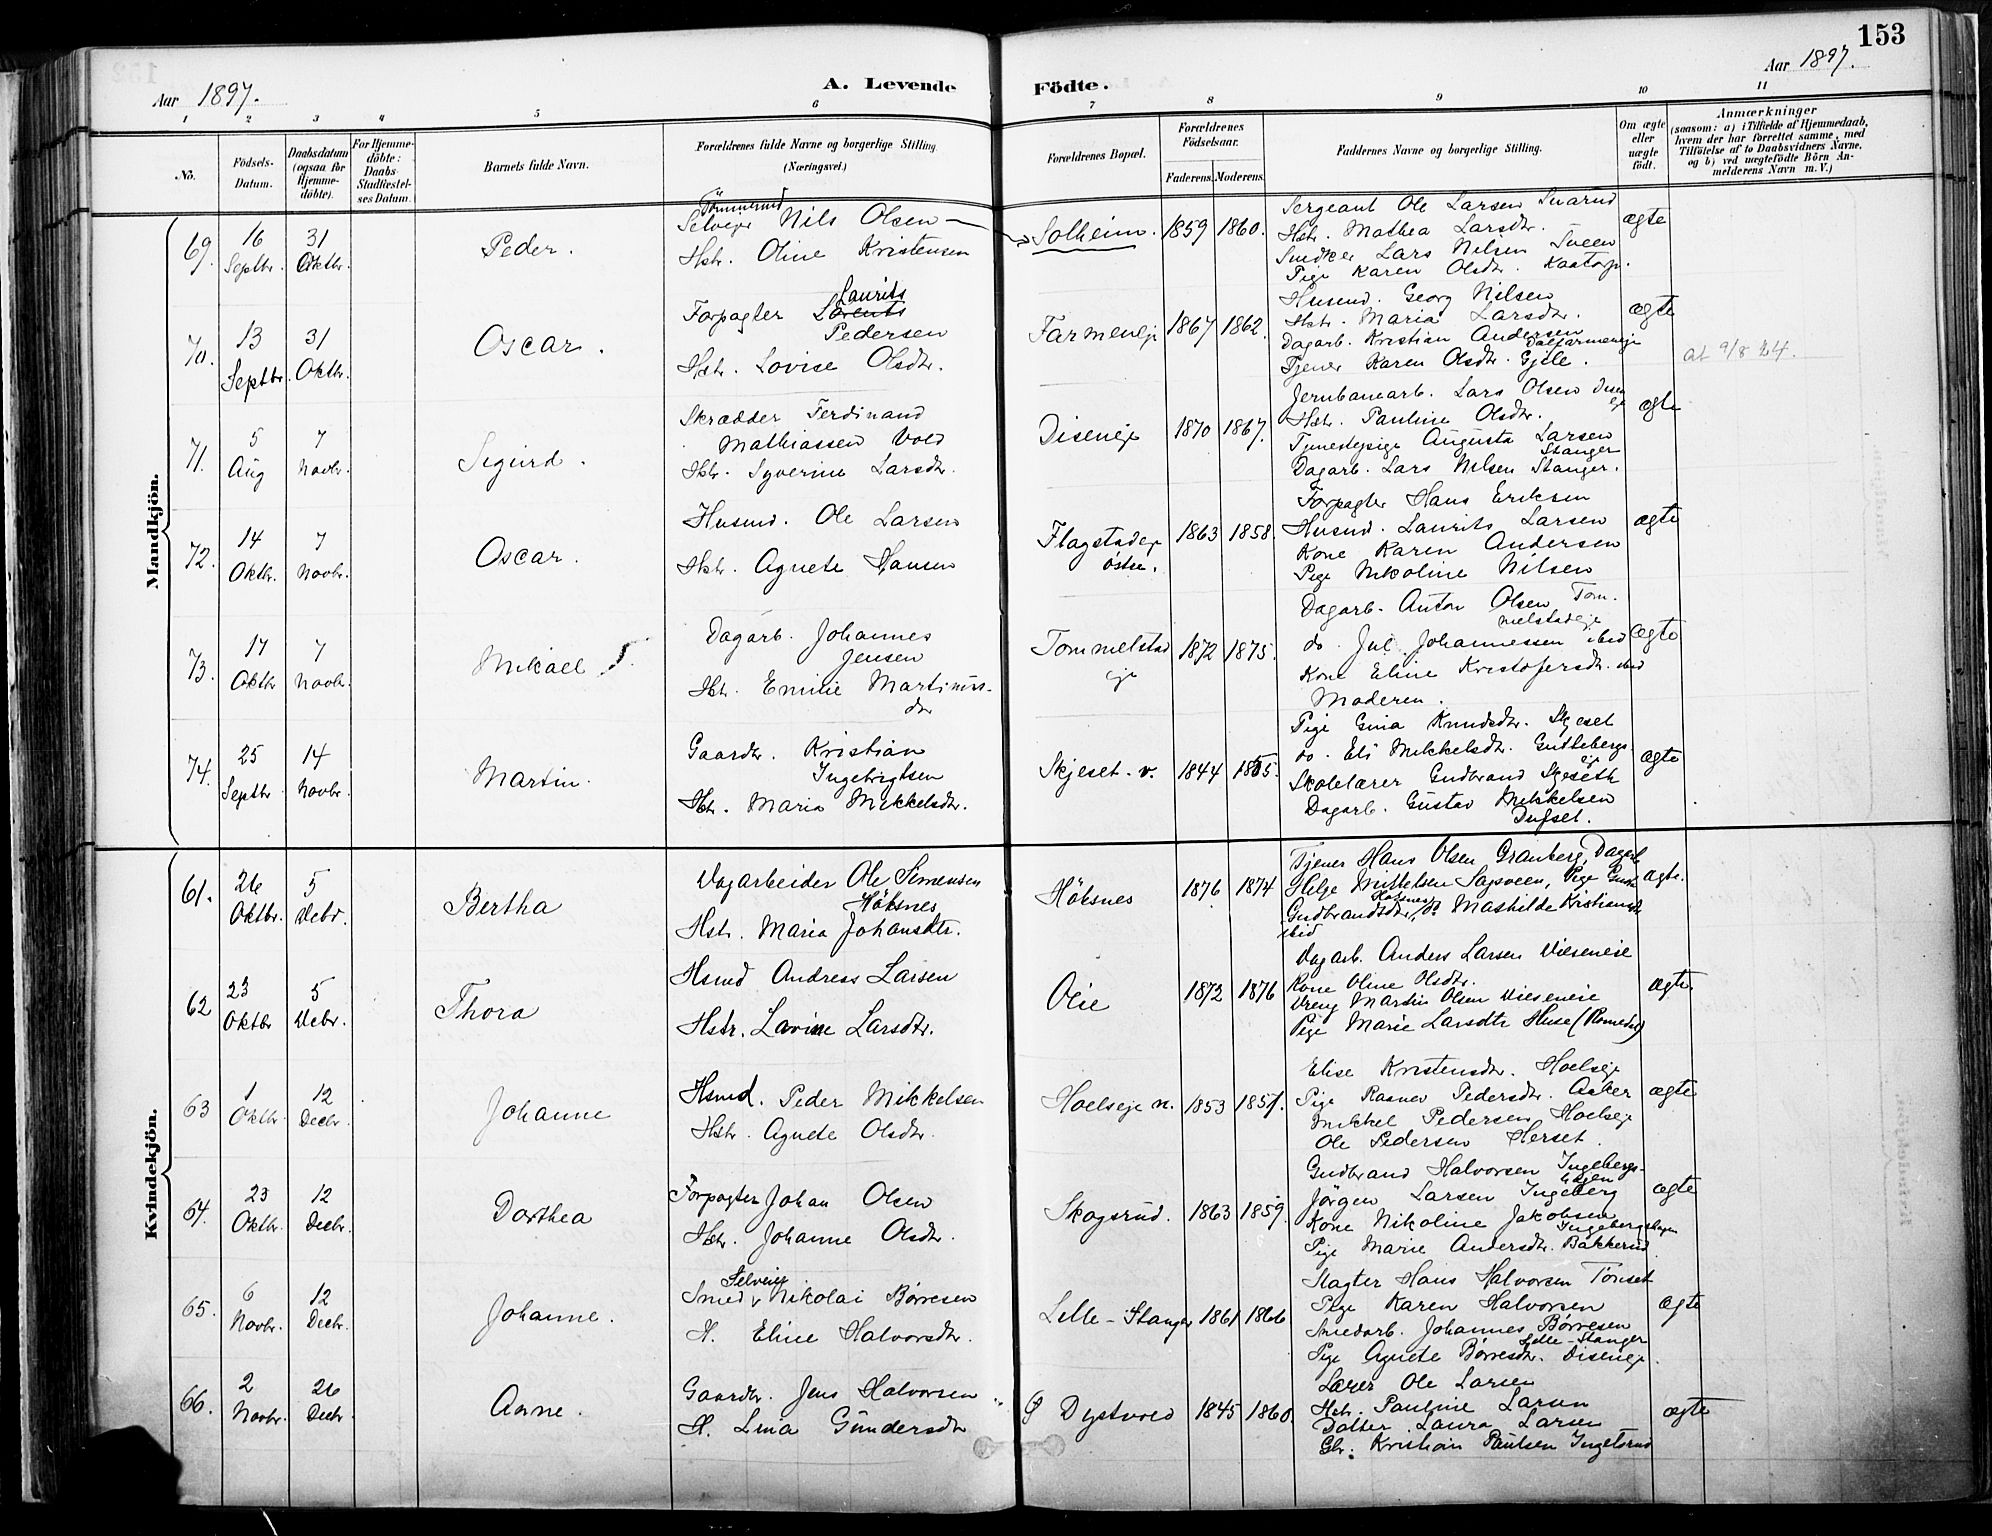 153
Aar 1897.
A. Levende Födte.
Aar 1897.
1 2 3 4 5 6 7 8 9 10 11
No.
Födsels-Datum.
Daabsdatum (ogsaa for Hjemmedöbte).
For Hjemmedöbte: Daabs-Stadfæstelses Datum.
Barnets fulde Navn.
Forældrenes fulde Navne og borgerlige Stilling (Næringsvei.)
Forældrenes Bopæl.
Forældrenes Födselsaar.
Faderens. Moderens.
Faddernes Navne og borgerlige Stilling.
Om ægte eller uægte födt.
Anmærkninger
(saasom: a) i Tilfælde af Hjemmedaab,
hvem der har forrettet samme, med
Tilföielse af to Daabsvidners Navne,
og b) ved uægtefödte Börn Anmelderens Navn m. V.)
Mandkjön.
69. 16 Septbr. 31 Oktbr.
Peder.
Tömmerud
Selveje Nils Olsen
Hstr. Oline Kristensen
Solheim. 1859 1860.
Sergeant Ole Larsen Snarud
Hstr. Mathea Larsdtr.
Snedker Lars Nilsen Tveen
Pige Karen Olsdtr. Kaatorp.
ægte
70. 13 Septbr. 31 Oktbr.
Oscar.
Laurits
Forpagter Lorents
Pedersen
Hstr. Lovise Olsdtr.
Farmeneje 1867 1862.
Husmd. Georg Nilsen
Hstr. Maria Larsdtr.
Dagarb. Kristian Andersen
Dalfarmeneje
Tjener Karen Olsdtr. Gjlle.
ægte
at 9/8 24.
71. 5 Aug 7 Novbr.
Sigurd.
Skrædder Ferdinand
Mathiassen Vold
Hstr. Syverine Larsdtr.
Diseneje 1870 1867.
Jernbanearb. Lars Olsen Diseneje
Hstr. Pauline Olsdtr.
Tjenestepige Augusta Larsen
Stanger
Dagarb. Lars Nilsen Stanger.
ægte
72. 14 Oktbr. 7 Novbr.
Oscar.
Husmd. Ole Larsen
Hstr. Agnete Hansen
Flagstadeje östre. 1863 1858.
Forpagter Hans Eriksen
Husmd. Laurits Larsen
Kone Karen Andersen
Pige Nikoline Nilsen
ægte
73. 17 Oktbr 7 Novbr.
Mikael
Dagarb. Johannes
Jensen
Hstr. Emilie Martinus-
dtr
Tommelstad eje 1872 1875.
Dagarb. Anton Olsen Tom-
melstadeje
do. Jul. Johannessen ibid
Kone Eline Kristofersdtr. ibid
Moderen.
ægte
74. 25 Septbr 14 Novbr.
Martin.
Gaardbr. Kristian
Ingebrigtsen
Hstr. Maria Mikkelsdtr.
Skjeset v. 1844 1865.
Pige Gina Knudsdtr. Skjeset
do. Eli Mikkelsdtr. Guttebergs
eje
Skolelærer Gudbrand Skjeseth
Dagarb. Gustav Mikkelsen
Dufset.
ægte
Kvindekjön.
61. 26 Oktbr. 5 Debr.
Bertha
Dagarbeider Ole Simensen
Höksnes
Hstr. Maria Johansdtr.
Höksnes 1876 1874
Tjener Hans Olsen Granberg, Dagarb
Helge Mikkelsen Sagsveen, Pige
Höksnes
Gudbrandsdtr, do Mathilde Kristiansdtr
ibid
ægte.
62 23 Oktbr 5 Debr.
Thora
Hsmd Andreas Larsen
Hstr. Lovine Larsdtr.
Oeie 1872 1876
Dagarb. Anders Larsen Diseneie
Kone Oline Olsdtr.
Dreng Martin Olsen Diseneie
Pige Marie Larsdtr Huse (Romedal)
ægte.
63 1 Oktbr. 12 Decbr.
Johanne
Hsmd. Peder Mikkelsen
Hstr. Agnete Olsdtr.
Hoelseje n. 1853 1857.
Elise Kristensdtr. Hoelseje
Pige Ragnev Pedersdtr. Aaker
Mikkel Pedersen Hoelseje
Ole Pedersen Herset.
ægte
64. 23 Oktbr. 12 Decbr.
Dorthea
Forpagter Johan Olsen
Hstr. Johanne Olsdtr.
Skogsrud. 1863 1859.
Gudbrand Halvorsen Ingebergs-
hagen
Jörgen Larsen Ingeberg
Kone Nikoline Jakobsen
Ingebergshagen
Pige Marie Andersdtr. Bakkerud.
ægte
65. 6 Novbr. 12 Decbr.
Johanne.
Selveier
Smed Nikolai Børresen
H. Eline Halvorsdtr.
Lille-Stanger 1861 1866
Slagter Hans Halvorsen Tönset
Pige Karen Halvorsen
Smedarb. Johannes Børresen
Lille-Stanger
Pige Agnete Børresdtr. Diseneje.
ægte
66. 2 Novbr. 26 Decbr.
Anne.
Gaardbr. Jens Halvorsen
H. Lina Gundersdtr
Dystvold 1845 1860.
Lærer Ole Larsen
Hstr. Pauline Larsen
Datter Laura Larsen
Gbr. Kristian Paulsen Ingelsrud
ægte